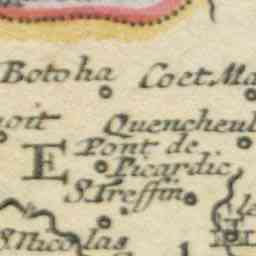 Botoha Coet Ma
oit Quencheul
E Pont de
Picardie
S. Treffin
le
S. Nicolas